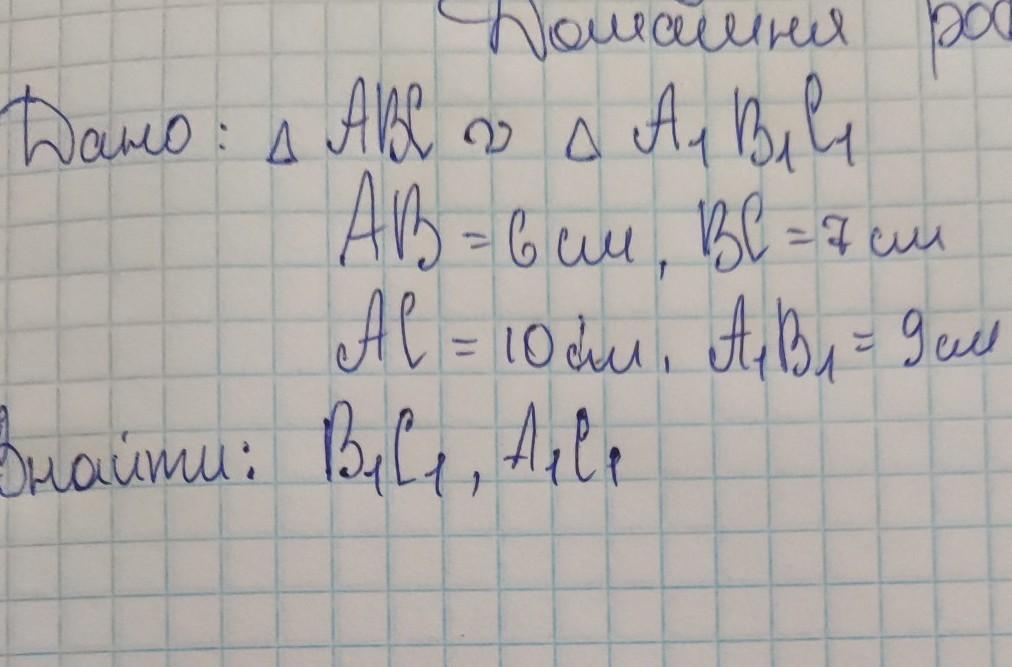 Домашня
Дано: △ ABC ∾ △ A₁B₁C₁
AB = 6 см, BC = 7 см
AC = 10 см, A₁B₁ = 9 см
Знайти: B₁C₁, A₁C₁